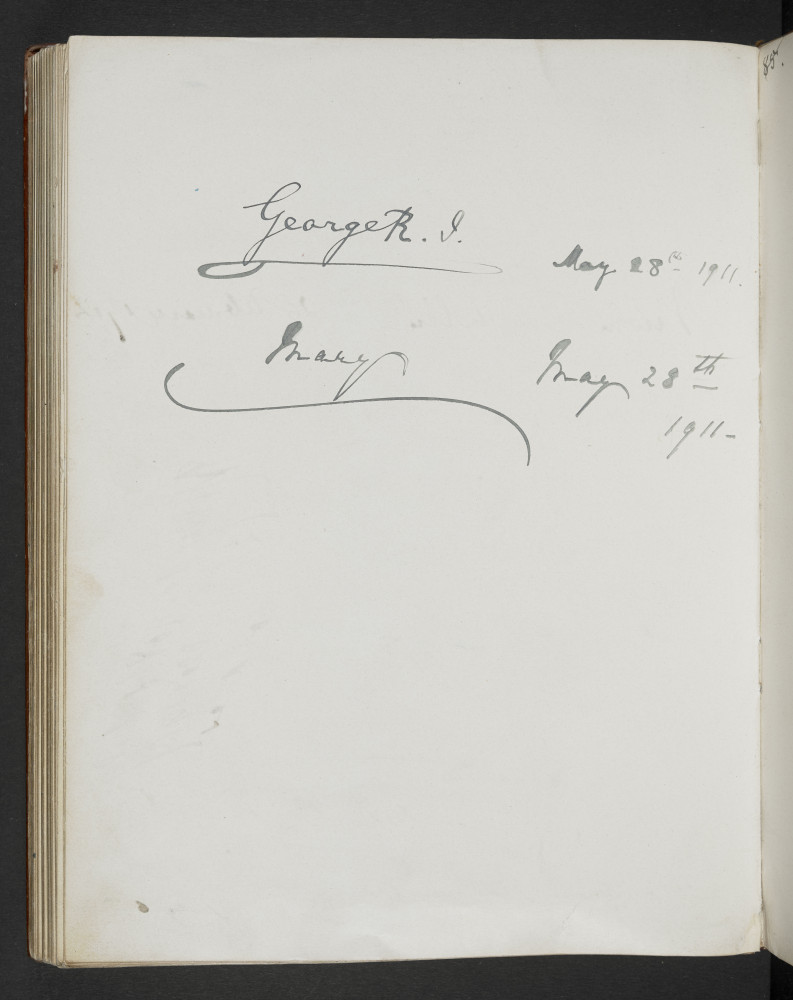 George R. I.
May 28th 1911.
Mary
May 28th
1911-
85.